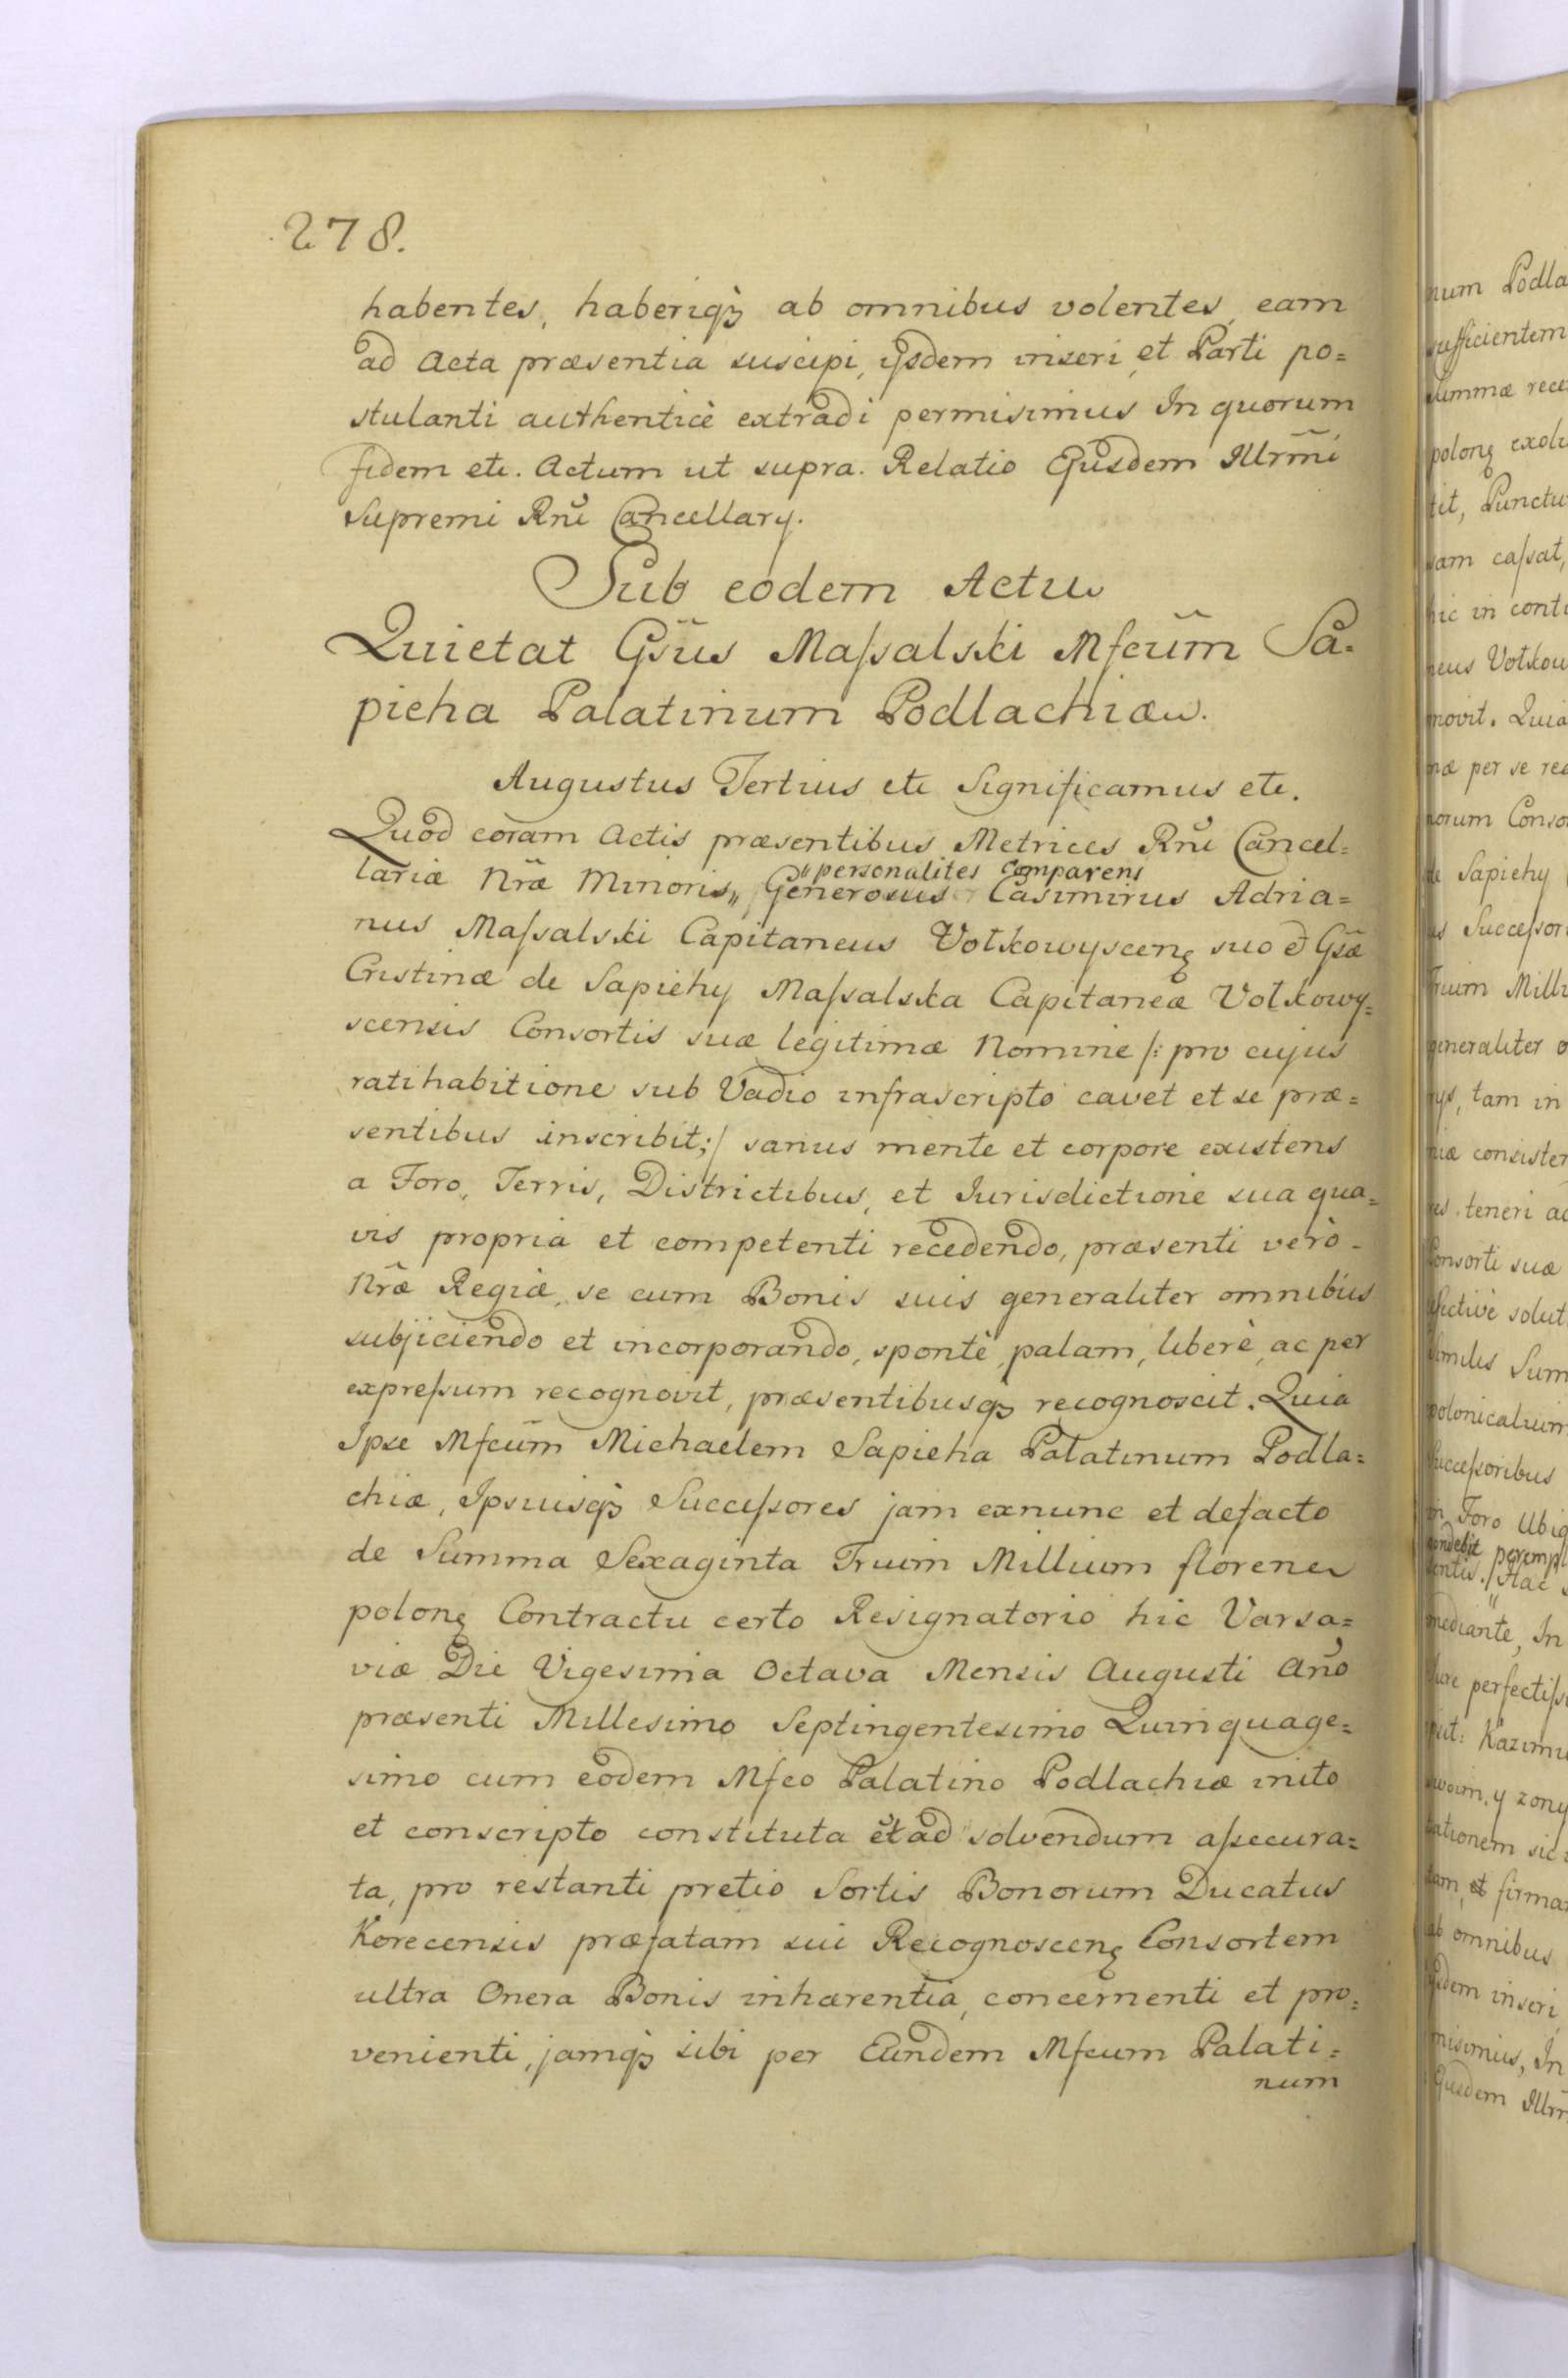 278.
habentes, haberiqꝫ ab omnibus volentes, eam
ad Acta præsentia suscipi, ijsdem inseri, et Parti po=
stulanti authenticè extradi permisimus In quorum
fidem etc. Actum ut supra. Relatio Ejusdem Illrm̃i
Supremi Rnĩ Cancellary.
Sub eodem Actu
Quietat Gsũs Maſsalski Mfcũm Sa=
pieha Palatinum Podlachiæ.
Augustus Tertius etc Significamus etc.
Quod coram Actis præsentibus Metrices Rnĩ Cancel=
lariæ Nræ̃ Minoris,, Generosus Casimirus Adria=
"personalites Comparens
nus Maſsalski Capitaneus Wołkowyscenʒ suo et Gsæ̃
Cristinæ de Sapiehy Maſsalska Capitaneæ Wołkowy=
scensis Consortis suæ legitimæ Nomine /: pro cujus
ratihabitione sub Vadio infrascripto cavet et se præ=
sentibus inscribit; / sanus mente et corpore existens
a Foro, Terris, Districtibus, et Iurisdictione sua qua=
vis propria et competenti recedendo, præsenti verò
Nræ̃ Regiæ, se cum Bonis suis generaliter omnibus
subjiciendo et incorporando, spontè, palam, liberè, ac per
expreſsum recognovit, præsentibusqꝫ recognoscit. Quia
Ipse Mfcũm Michaelem Sapieha Palatinum Podla=
chiæ, Ipsuisqꝫ Succeſsores jam exnunc et defacto
de Summa Sexaginta Trium Millium florenor
polonʒ Contractu certo Resignatorio hic Varsa=
viæ Die Vigesima Octava Mensis Augusti Añ̃o
præsenti Millesimo Septingentesimo Quinquage=
simo cum eodem Mfco Palatino Podlachiæ inito
et conscripto constituta et ad solvendum aſsecura=
ta, pro restanti pretio Sortis Bonorum Ducatus
Korecensis præfatam sui Recognoscenʒ Consortem
ultra Onera Bonis inhærentia, concernenti et pro=
venienti, jamqꝫ sibi per Eundem Mfcum Palati=
num
num Podla
sufficientem
summæ rece
polonʒ exolu
tit, Punctu
sam caſsat,
hic in cont
neus Wołkow
novit. Quia
næ per se rec
norum Conso
de Sapiehy
Succeſsor
Trium Milli
generaliter o
tam in
niæ consisten
teneri ad
Consorti suæ
solut
similis Sum
polonicalium
Succeſsoribus
in Foro Ubiq
peremp
Hac
mediante, In
perfectiſs
Kazimi
swoim, y zony
tationem sic
tam, et firma
ab omnibus
ijsdem inseri
misimus, In
Ejusdem Illrm